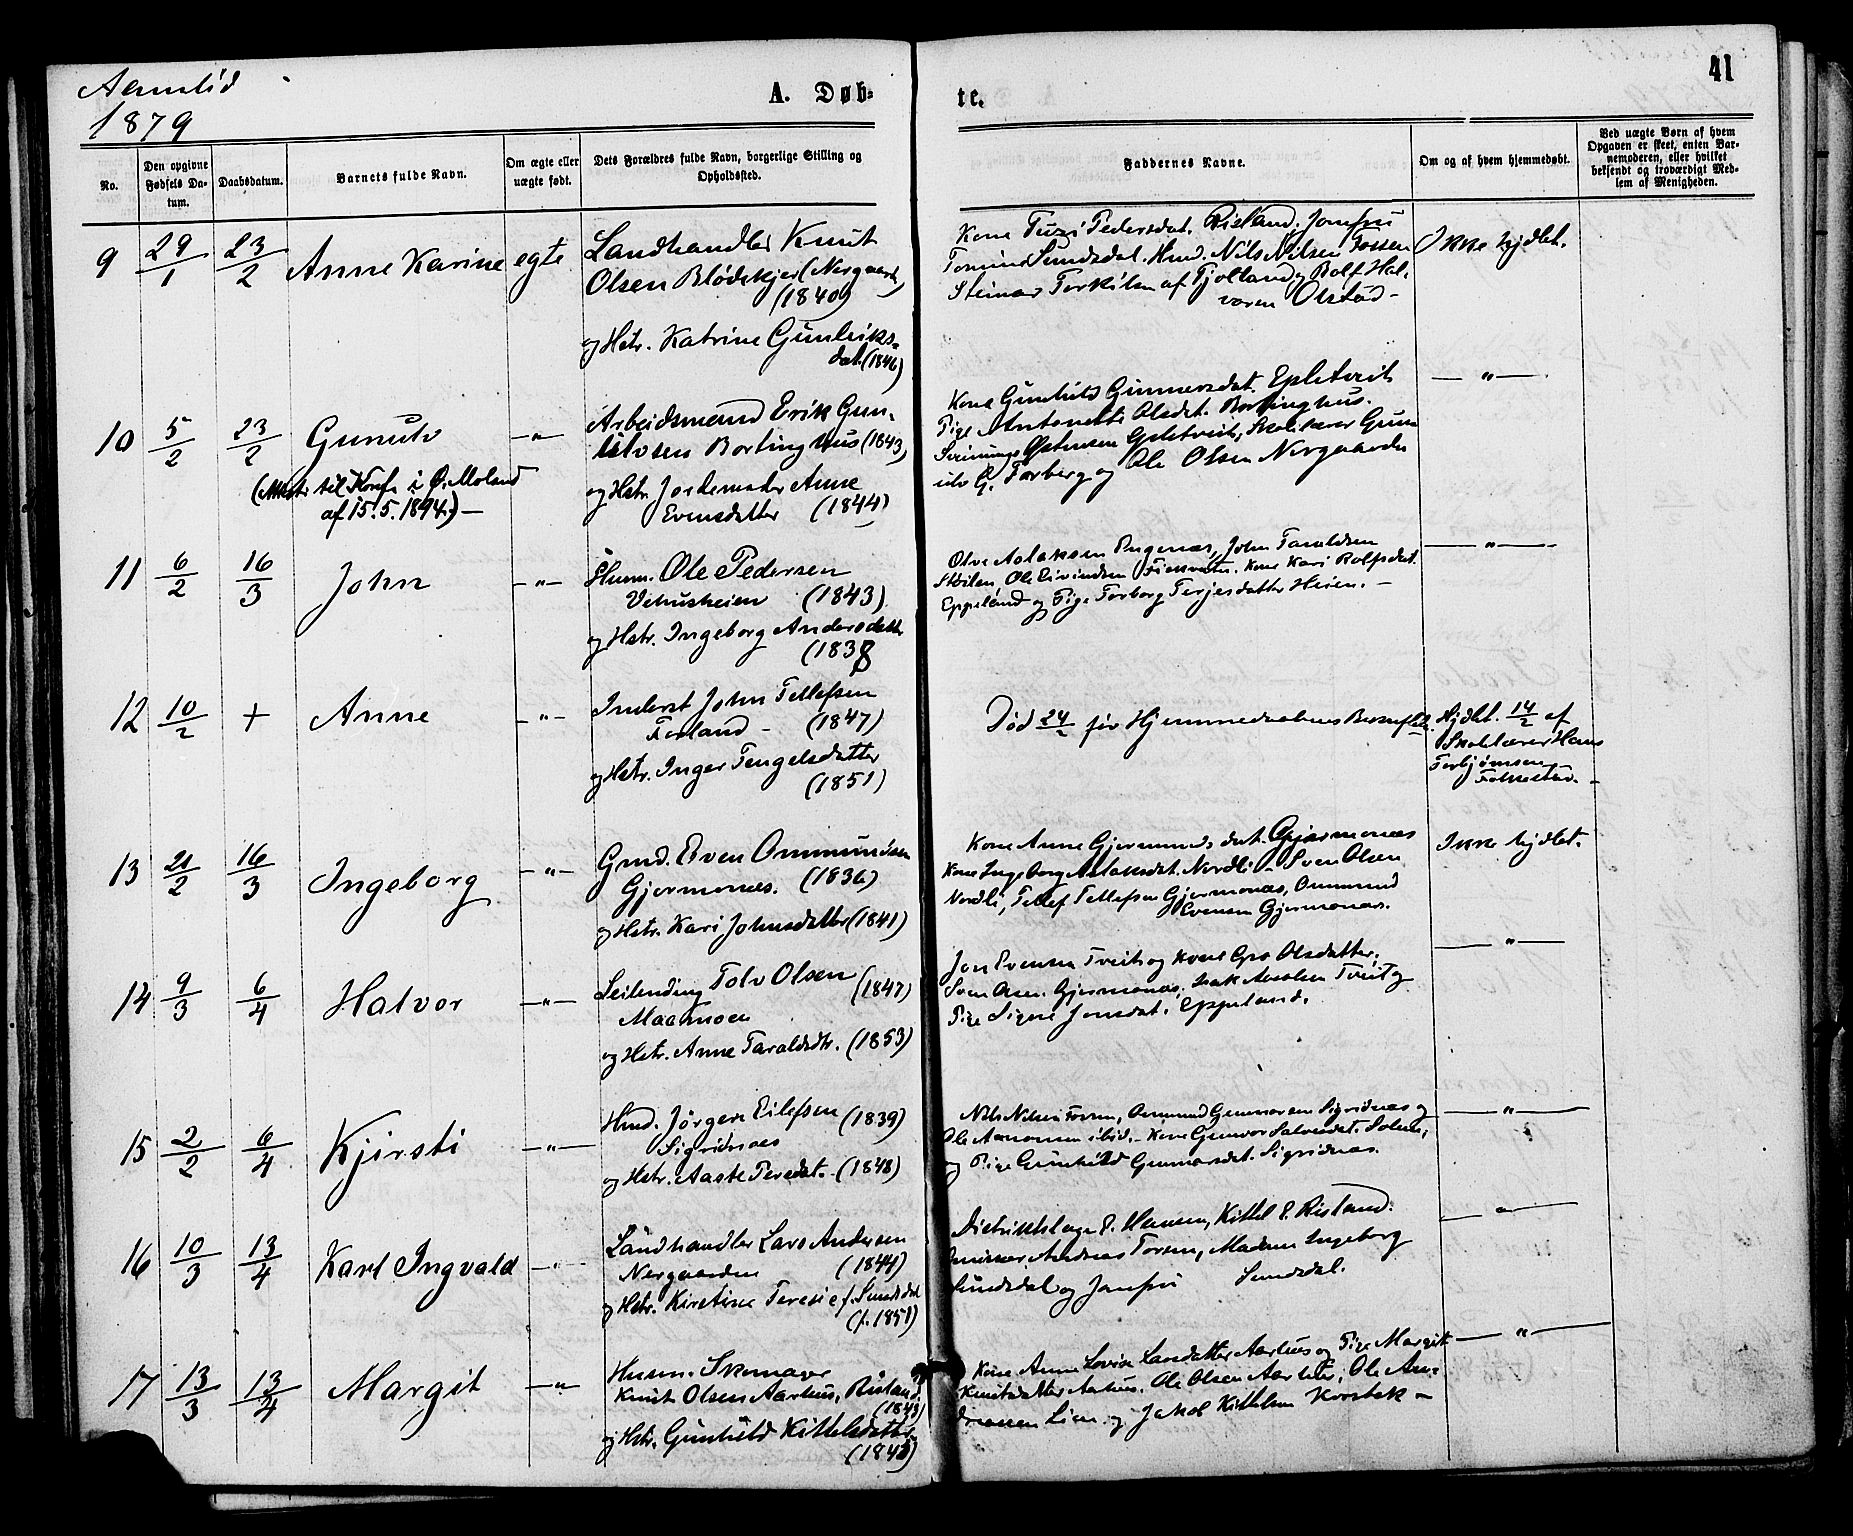 Aamlid
1879
A. Døb-
te.
41
No.
Den opgivne Fødsels Da-
tum.
Daabsdatum.
Barnets fulde Navn.
Om ægte eller
uægte født.
Dets Forældres fulde Navn, borgerlige Stilling og
Opholdssted.
Faddernes Navne.
Om og af hvem hjemmedøbt.
Ved uægte Børn af hvem
Opgaven er skeet, enten Bar-
nemoderen, eller hvilket
bekjendt og troværdigt Med-
lem af Menigheden.
9 29/1 23/2 Anne Karine egte
Landhandler Knut
Olsen Blødekjær (Nergaard)
(1840)
og Hstr. Katrine Gunleiks-
dat. (1846)
Kone Pedersdat. Risland, Jomfru
Sundsdal. Nils Nilsen Fossen
Steinar Torkilsen af Fjolland og Rolf Hal-
vorsen Olstad -
Ikke hjdbt.
10 5/2 23/2 Gunulv -"-
(Attest til Konf. i Ø. Moland
af 15.5.1894.) -
Arbeidsmand Erik Gun-
ulvsen Bortinghus (1843)
og Hstr. Jordemoder Anne
Evensdatter (1844)
Kone Gunhild Gunnarsdat. Epletveit
Pige Antonette Olsdat. Bortinghus.
Østensen Epletveit, Skolelærer Gun-
ulv G. Torberg og Ole Olsen Nergaarden
-"-
11 6/2 16/3 John -"-
Husm. Ole Pedersen
Vehusheien (1843)
og Hstr. Ingeborg Andersdatter
(1838
Olve Aslaksen Engenes, John Taraldsen
Stoilen, Ole Eivindsen Kone Kari Rolfsdat.
Eppeland og Pige Torborg Terjesdatter Heien. -
-"-
12 10/2 + Anne -"-
Inderst John Tellefsen
Forland - (1847)
og Hstr. Inger Tengelsdatter
(1851)
Død 24/2 før Hjemmedaabens Bekræftelse.
Hjdbt. 14/2 af
Skolelærer Hans
Torbjørnsen
Folkestad. -
13 21/2 16/3 Ingeborg -"-
Gmd. Even Ommundsen
Gjermones. (1836)
og Hstr. Kari Johnsdatter (1841)
Kone Anne Gjermundsdat. Gjermones
Kone Ingeborg Aslaksdat. Nordli - Sven Olsen
Nordli, Tellef Tellefsen Gjermones, Ommund
Evensen Gjermones.
Ikke hjdbt.
14 9/3 6/4 Halvor -"-
Leilending Tolv Olsen (1847)
Maamoen
og Hstr. Anne Taraldsdtr. (1853)
Jon Evensen Tveit og Kone Gro Olsdatter,
Sven Olsen. Gjermones. Isak Tveit og
Pige Signe Jonsdat. Eppeland.
-"-
15 2/2 6/4 Kjirsti -"-
Hmd. Jørgen Eilefsen (1839)
Sigridnæs
og Hstr. Aaste Peredat. - (1848)
Nils Nilsen Fossen, Osmund Gunnarsen Sigridnæs og
Ole Aanonsen ibid. - Kone Gunvor Salvesdat.
og Pige Gunhild Gunnarsdat. Sigridnæs.
-"-
16 10/3 13/4 Karl Ingvald -"-
Landhandler Lars Andersen
Nergaarden (1844)
og Hstr. Kirstine Teresie f. Sundsdal
(f. 1851)
Distriktslæge P. Hansen, Kittel P. Risland.
Andreas Torsen, Madam Ingeborg
Sundsdal og Jomfru Sundsdal.
-"-
17 13/3 13/4 Margit -"-
Husm. Skomager
Knut Olsen Aarhus, Risland
(1843)
og Hstr. Gunhild Kittelsdatter
(1842)
Kone Anne Lovise Larsdatter Aarhus og Pige Margit
Knutsdatter Aarhus, Ole Olsen Aarhus, Ole An-
dreassen Lien og Jakob Kittelsen -
-"-